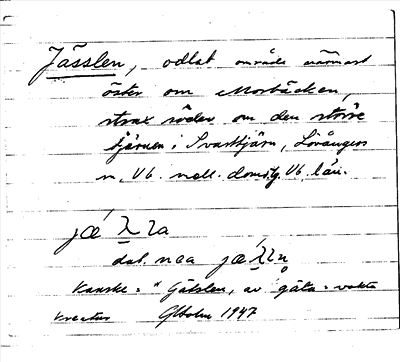 Jässlen, odlat område närmast
öster om Morbäcken,
strax söder om den större
tjärnen i Svarttjärn, Lövångers
n. Vb. nall. doms. Vb. län.
jǽ λ̲ ɿa
dat. naa jǽλ̲ɿn̥
Kanske = "Gätslen, av gäta = vakta
kreatur GHolm 1947